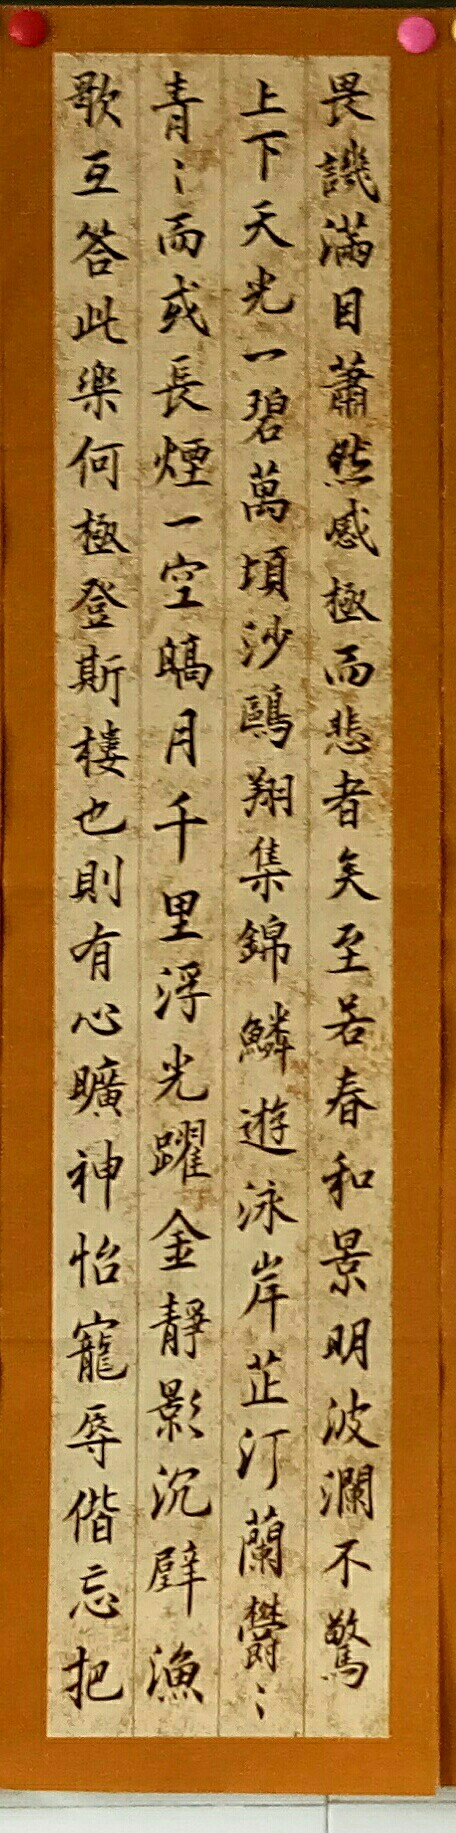 畏譏滿目蕭然感極而悲者矣至若春和景明波瀾不驚
上下天光一碧萬頃沙鷗翔集錦鱗遊泳岸芷汀蘭鬱〻
青〻而或長煙一空皜月千里浮光躍金靜影沉璧漁
歌互答此樂何極登斯樓也則有心曠神怡寵辱偕忘把